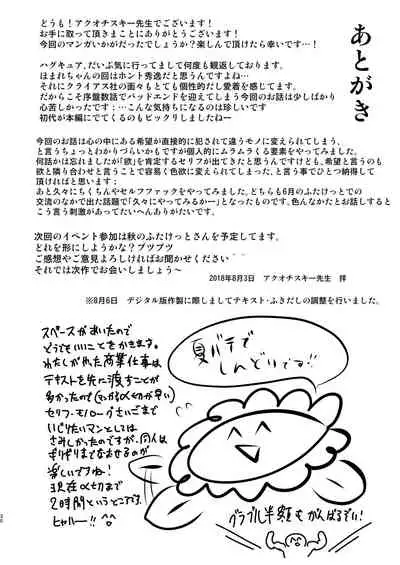 あとがき
どうも！アクオチスキー先生でございます！
お手に取って頂きまことにありがとうございます！
今回のマンガいかがだったでしょうか？楽しんで頂けたら幸いです…！
ハグキュア、だいぶ気に行ってまして何度も観返しております。
ほまれちゃんの回はホント秀逸だと思うんですよね…
それにクライアス社の面々もとても個性的だし愛着を感じてます。
だからこそ序盤数話でバッドエンドを迎えてしまう今回のお話は少しばかり
心苦しかったです：…こんな気持ちになるのは珍しいです
初代が本編にでてくるのもビックリしましたねー
今回のお話は心の中にある希望が直接的に犯されて違うモノに変えられてしまう、
と言うちょっとわかりづらいかもですが個人的にムラムラくる要素をやってみました。
何話かは忘れましたが「欲」を肯定するセリフが出てきたと思うんですけども、希望と言うのも
欲と隣り合わせと言うことで容易く色欲に変えられてしまった、と言う事でひとつ納得して
頂ければと思います；
あと久々にちくちんやセルフファックをやってみました。どちらも6月のふたけっとでの
交流のなかで出た話題で「久々にやってみるかー」となったものです。色んなかたとお話しすると
こう言う刺激があってたいへんありがたいです。
次回のイベント参加は秋のふたけっとさんを予定してます。
どれを形にしようかな？ブツブツ
ご感想やご意見よろしければお聞かせください
それでは次作でお会いしましょう～
2018年8月3日　アクオチスキー先生　拝
※8月6日　デジタル版作製に際しましてテキスト・ふきだしの調整を行いました。
スペースがあいたので
どうでもいいことをかきます。
わたしがやれた商業仕事は
テキストを先に渡すことが
多かったので
セリフ・モノローグさいごまで
いじりたいマンとしては
さみしかったのですが、同人は
ギリギリまでなおせるのが
楽しいですね！
現在〆切まで
2時間というところです。
ヒャハー!!
夏バテで
しんどいでる!!
グラブル半額もがんばるぞい！